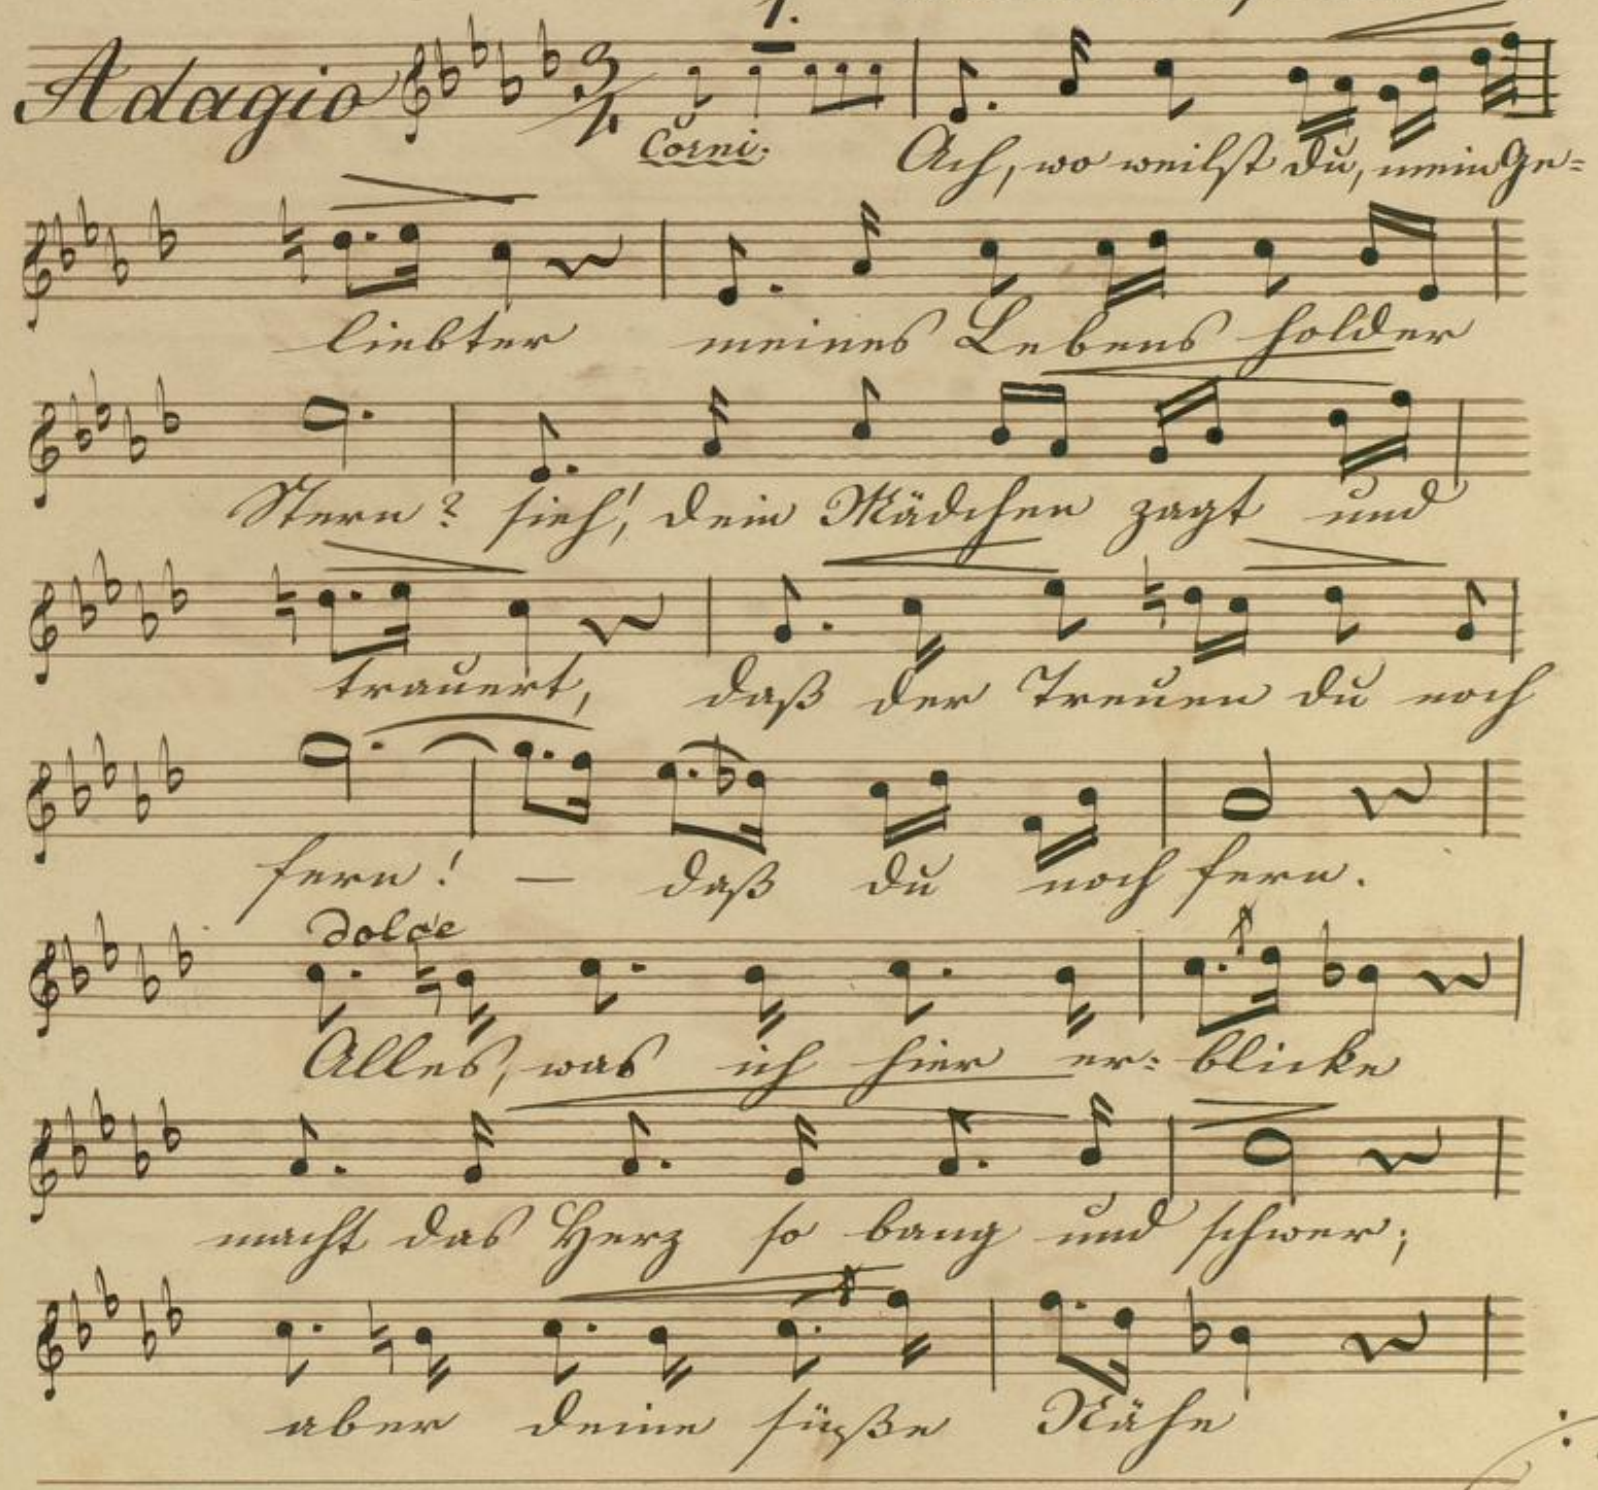 1.
Adagio 3/4
Corni.
Ach, wo weilst du, mein Ge=
liebter meines Lebens holder
Stern? sieh'! dein Mädchen zagt und
trauert, daß der Treuen du noch
fern! — daß du noch fern.
dolce
Alles, was ich hier er= blicke
macht das Herz so bang und schwer;
aber deine süße Nähe